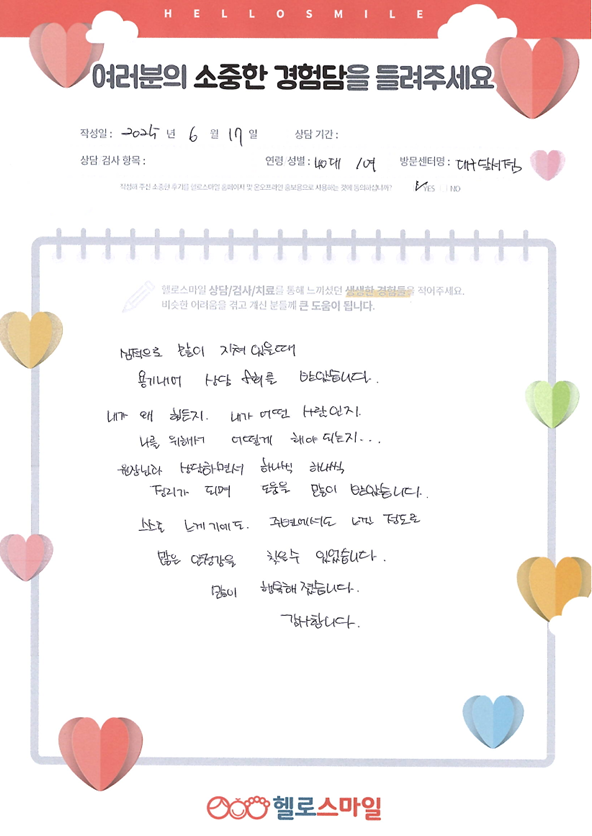 HELLOSMILE
여러분의 소중한 경험담을 들려주세요
작성일 : 2025 년 6 월 17 일 상담 기간 :
상담 검사 항목 : 연령 성별 : 40대 / 여 방문센터명 : 대구달서점
작성해 주신 소중한 후기를 헬로스마일 홈페이지 및 온오프라인 홍보용으로 사용하는 것에 동의하십니까? ✓YES □ NO
헬로스마일 상담/검사/치료를 통해 느끼셨던 생생한 경험들을 적어주세요.
비슷한 어려움을 겪고 계신 분들께 큰 도움이 됩니다.
심적으로 많이 지쳐 있을때
용기내어 상담 받았습니다.
내가 왜 힘든지. 내가 어떤 사람인지.
나를 위해서 어떻게 해야 되는지...
원장님과 상담하면서 하나씩 하나씩
정리가 되며 도움을 많이 받았습니다.
스스로 느끼기에도. 주변에서도 느낄 정도로
많은 안정감을 찾을수 있었습니다.
많이 행복해 졌습니다.
감사합니다.
헬로스마일